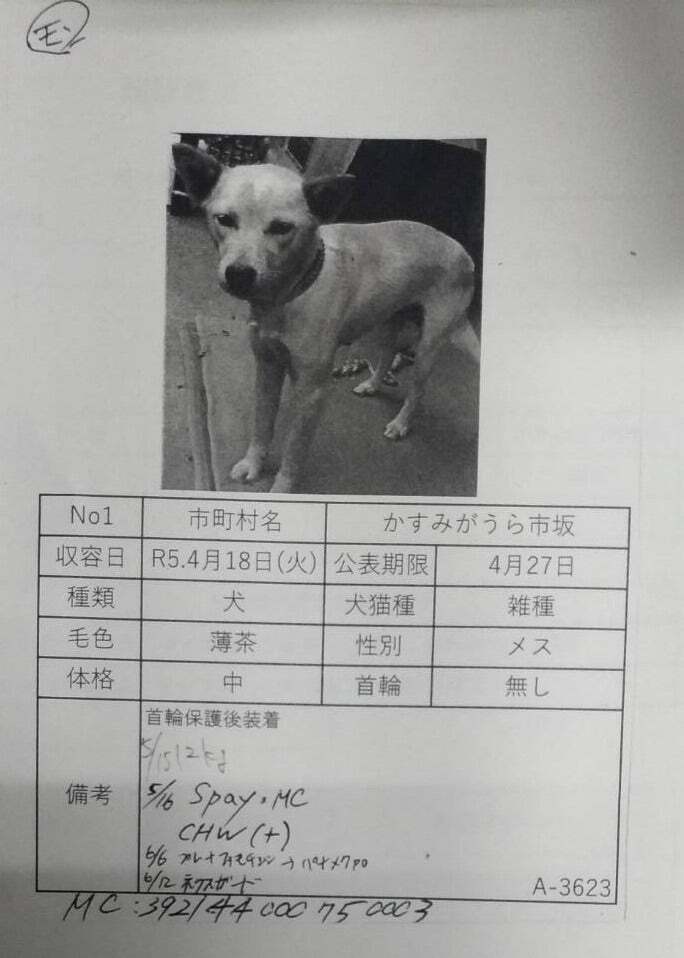 モ
No1 市町村名 かすみがうら市坂
収容日 R5.4月18日(火) 公表期限 4月27日
種類 犬 犬猫種 雑種
毛色 薄茶 性別 メス
体格 中 首輪 無し
備考 首輪保護後装着
5/15 12kg
5/16 Spay・MC
CHW(+)
6/6
6/12 ネクスガード
A-3623
MC:392144000750003